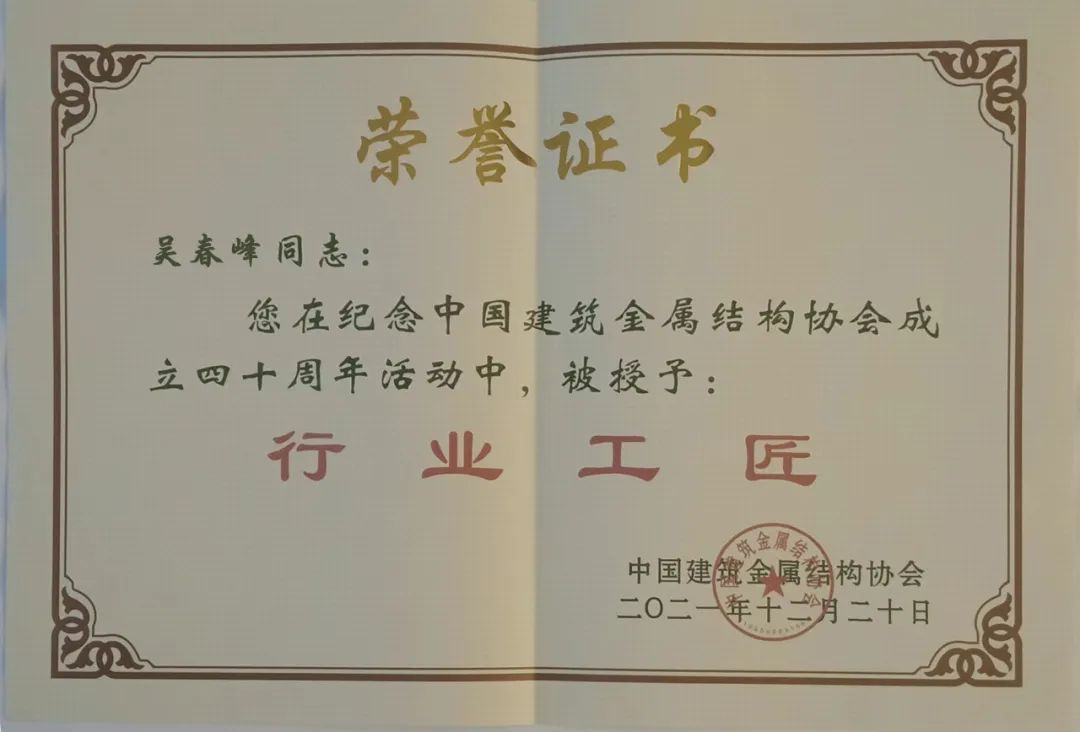 荣誉证书
吴春峰同志：
您在纪念中国建筑金属结构协会成
立四十周年活动中，被授予：
行业工匠
中国建筑金属结构协会
二〇二一年十二月二十日
中国建筑金属结构协会